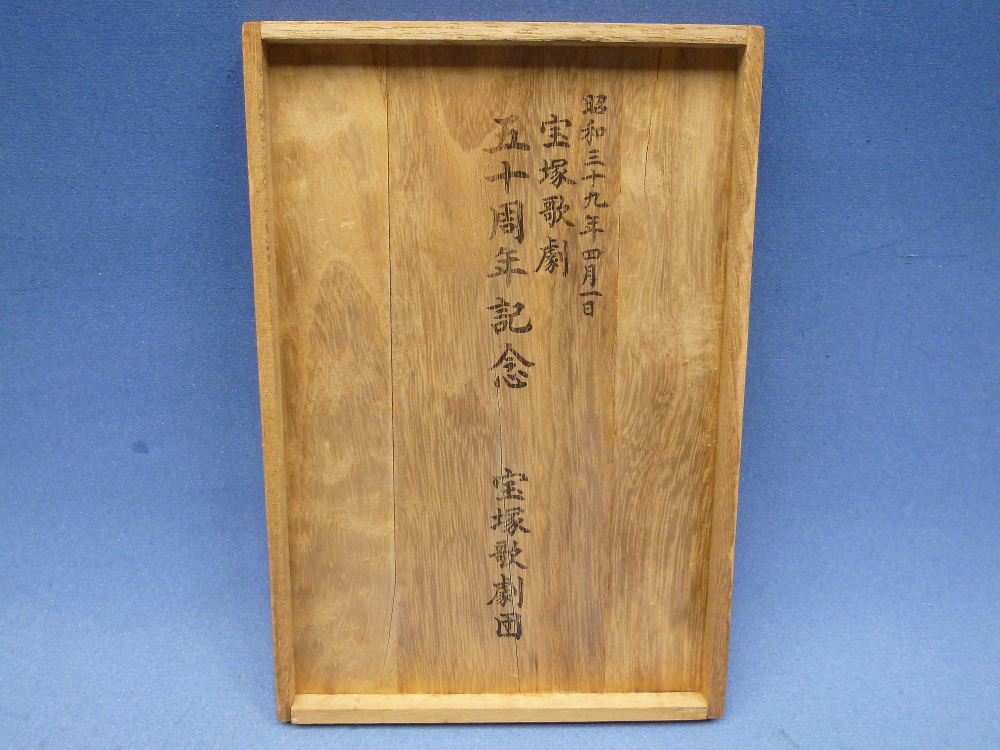 昭和三十九年四月一日
宝塚歌劇
五十周年記念 宝塚歌劇団